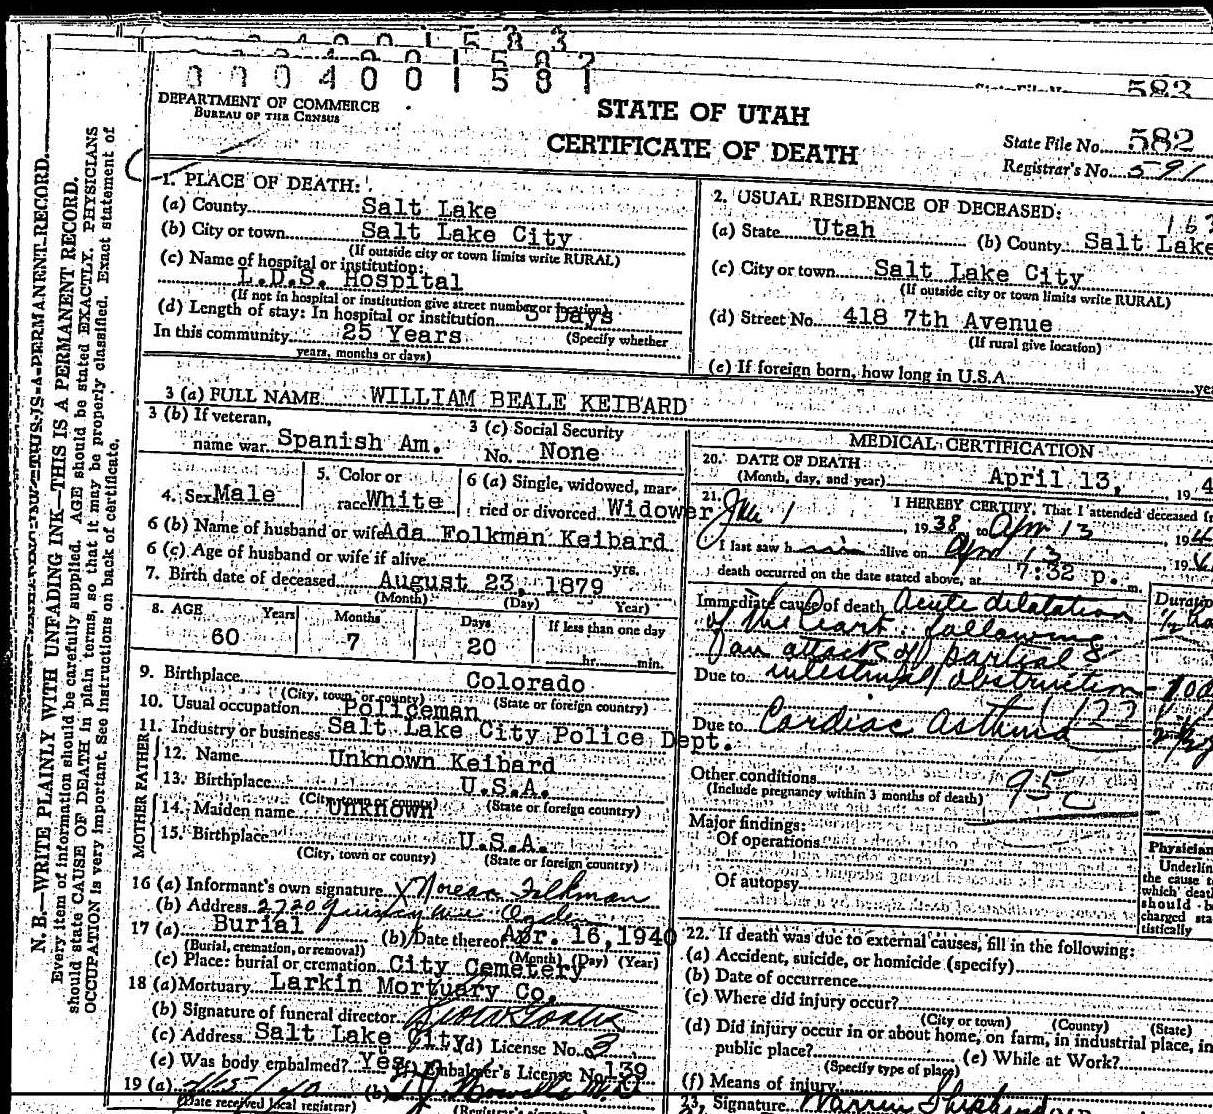 0 0 0 4 0 0 1 5 8 1
583
DEPARTMENT OF COMMERCE
BUREAU OF THE CENSUS
STATE OF UTAH
CERTIFICATE OF DEATH
State File No. 582
Registrar's No. 591
N. B.—WRITE PLAINLY WITH UNFADING INK—THIS IS A PERMANENT RECORD.
Every item of information should be carefully supplied. AGE should be stated EXACTLY. PHYSICIANS
should state CAUSE OF DEATH in plain terms, so that it may be properly classified. Exact statement of
OCCUPATION is very important. See instructions on back of certificate.
1. PLACE OF DEATH:
(a) County Salt Lake
(b) City or town Salt Lake City
(If outside city or town limits write RURAL)
(c) Name of hospital or institution:
L.D.S. Hospital
(If not in hospital or institution give street number or location)
(d) Length of stay: In hospital or institution Days
(Specify whether
In this community 25 Years
years, months or days)
2. USUAL RESIDENCE OF DECEASED:
(a) State Utah (b) County Salt Lake
(c) City or town Salt Lake City
(If outside city or town limits write RURAL)
(d) Street No. 418 7th Avenue
(If rural give location)
(e) If foreign born, how long in U.S.A.
3 (a) FULL NAME WILLIAM BEALE KEIBARD
3 (b) If veteran,
name war Spanish Am.
3 (c) Social Security
No. None
4. Sex Male
5. Color or
race White
6 (a) Single, widowed, mar-
ried or divorced Widower
6 (b) Name of husband or wife Ada Folkman Keibard
6 (c) Age of husband or wife if alive yrs.
7. Birth date of deceased August 23, 1879
(Month) (Day) Year)
8. AGE Years Months Days If less than one day
60 7 20 hr. min.
9. Birthplace Colorado
(City, town, or county) (State or foreign country)
10. Usual occupation Policeman
11. Industry or business Salt Lake City Police Dept.
FATHER
12. Name Unknown Keibard
13. Birthplace U.S.A.
(City, town or county) (State or foreign country)
MOTHER
14. Maiden name Unknown
15. Birthplace U.S.A.
(City, town or county) (State or foreign country)
16 (a) Informant's own signature Folkman
(b) Address 2720 Quincy Ave Ogden
17 (a) Burial (b) Date thereof Apr. 16, 1940
(Burial, cremation, or removal) (Month) (Day) (Year)
(c) Place: burial or cremation City Cemetery
18 (a) Mortuary Larkin Mortuary Co.
(b) Signature of funeral director
(c) Address Salt Lake City (d) License No. 3
(e) Was body embalmed? Yes (f) Embalmer's License No. 139
19 (a) (b)
(Date received local registrar)
MEDICAL CERTIFICATION
20. DATE OF DEATH
(Month, day, and year) April 13, 194
21. I HEREBY CERTIFY, That I attended deceased
1 1938 Apr 13 194
I last saw h alive on Apr 13, 19
death occurred on the date stated above, at 7:32 p. m.
Immediate cause of death Acute dilatation
of the heart following
an attack of partial
Due to intestinal obstruction
Due to Cardiac Asthma 122
Other conditions 95c
(Include pregnancy within 3 months of death)
Major findings:
Of operations
Of autopsy
Physician
Underlin
the cause t
which deat
should b
charged sta
tistically
22. If death was due to external causes, fill in the following:
(a) Accident, suicide, or homicide (specify)
(b) Date of occurrence
(c) Where did injury occur?
(City or town) (County) (State)
(d) Did injury occur in or about home, on farm, in industrial place, in
public place? (e) While at Work?
(Specify type of place)
(f) Means of injury
23. Signature Warren Shepherd